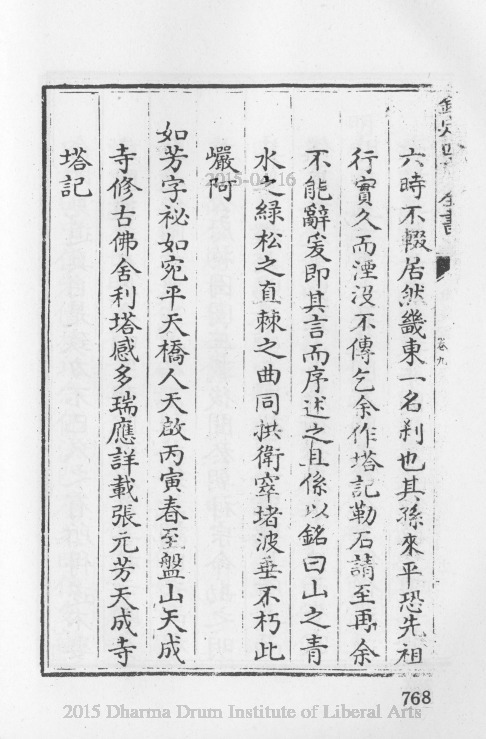 欽定四庫全書
卷九
六時不輟居然畿東一名刹也其孫來平恐先祖
行實久而湮沒不傳乞余作塔記勒石請至再余
不能辭爰即其言而序述之且係以銘曰山之青
水之緑松之直棘之曲同拱衛窣堵波垂不朽此
巖阿
如芳字祕如宛平天橋人天啟丙寅春至盤山天成
寺修古佛舍利塔感多瑞應詳載張元芳天成寺
塔記
2015-04-16
768
2015 Dharma Drum Institute of Liberal Arts